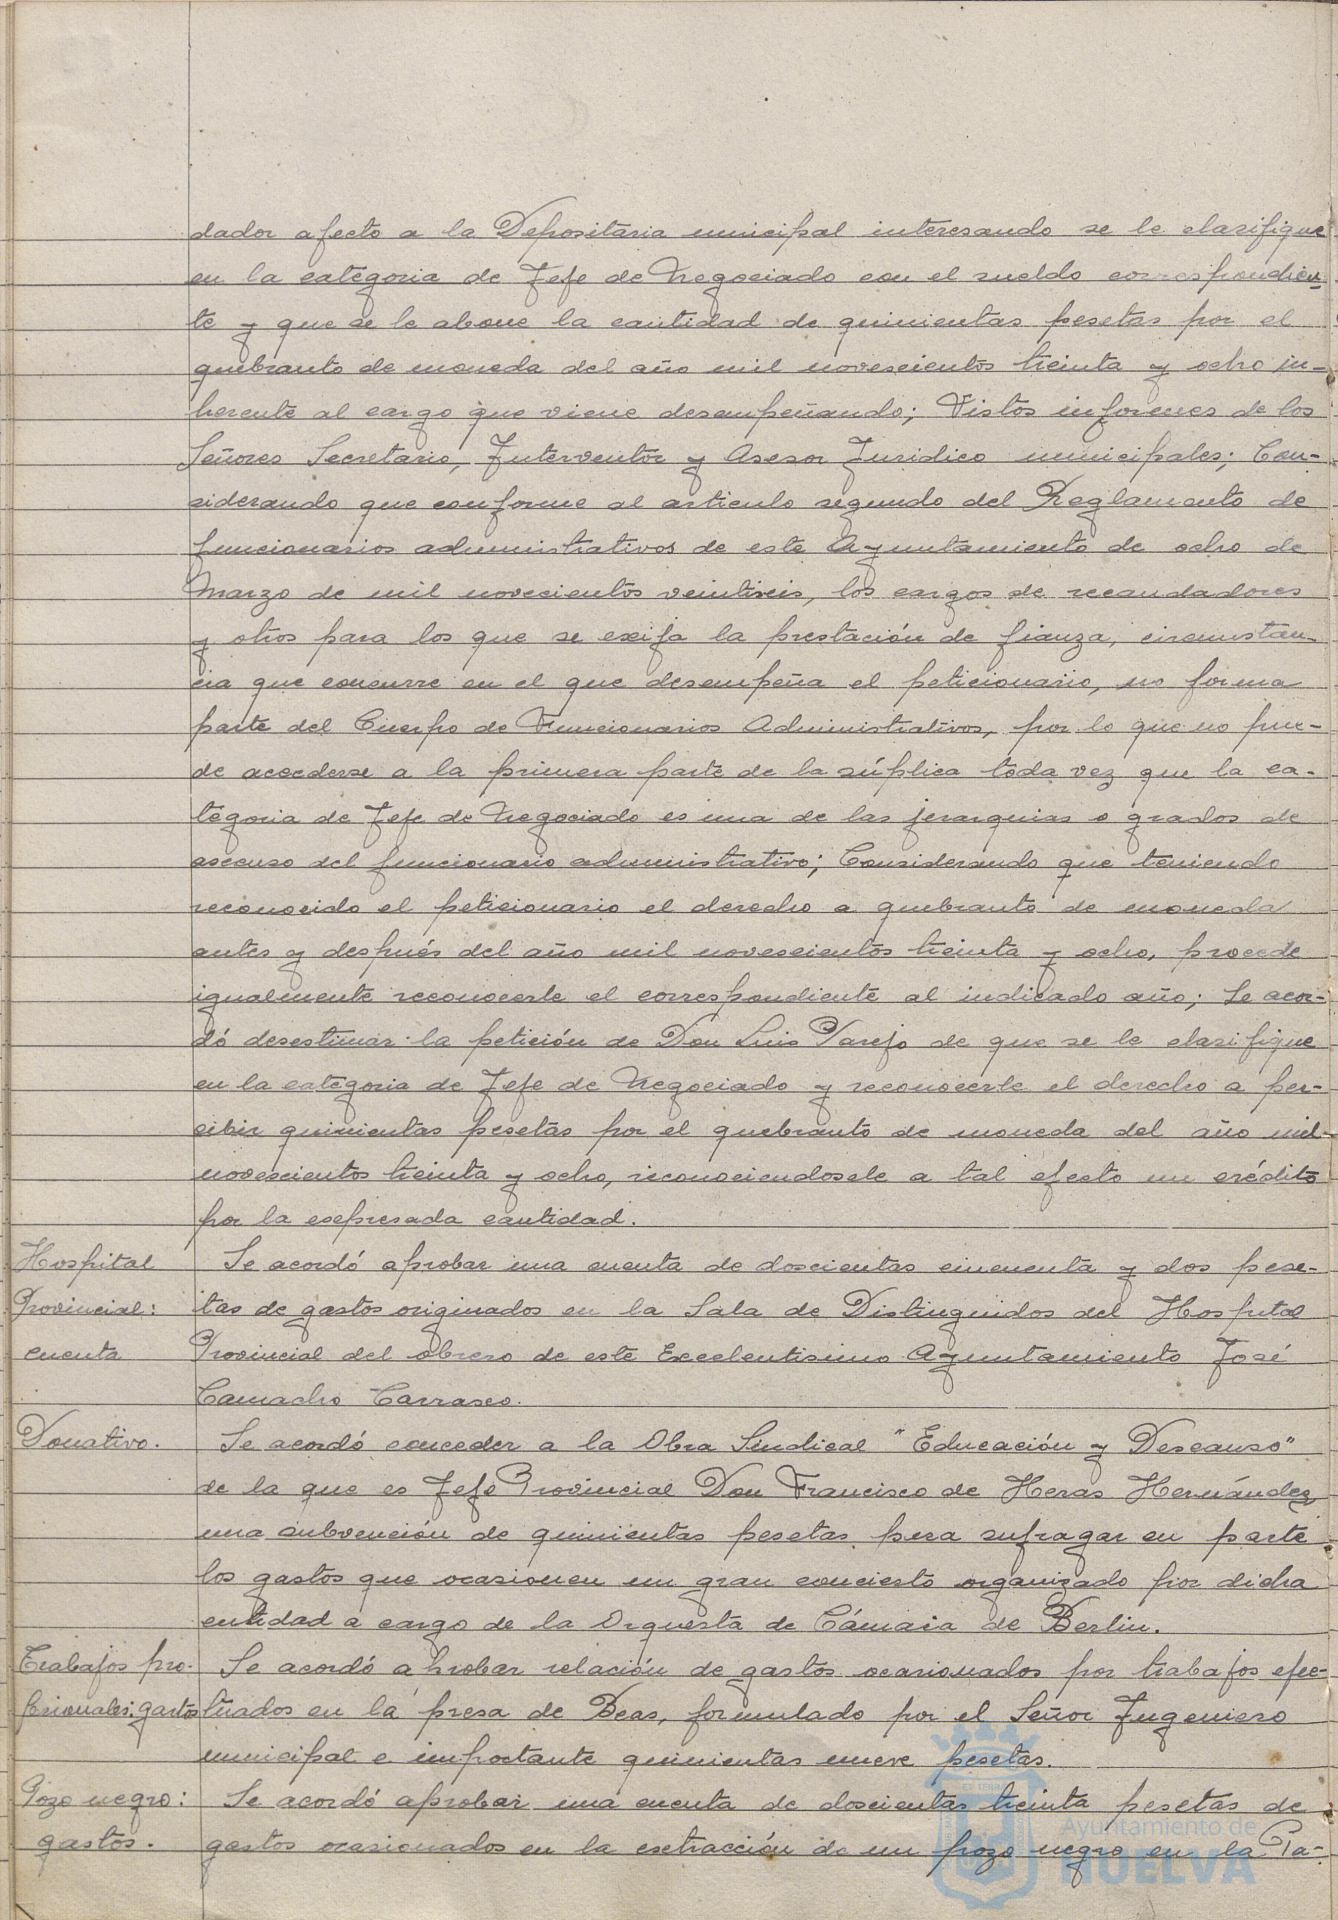 dador afecto a la Depositaria municipal interesando se le clasifique
en la categoria de Jefe de Negociado con el sueldo correspondien-
te y que se le abone la cantidad de quinientas pesetas por el
quebranto de moneda del año mil novescientos treinta y ocho in-
herente al cargo que viene desempeñando; Vistos informes de los
Señores Secretario, Interventor y Asesor Juridico municipales; Con-
siderando que conforme al articulo segundo del Reglamento de
funcionarios administrativos de este Ayuntamiento de ocho de
Marzo de mil novecientos veintiseis, los cargos de recaudadores
y otros para los que se exija la prestación de fianza, circunstan-
cia que concurre en el que desempeña el peticionario, no forma
parte del Cuerpo de Funcionarios Administrativos, por lo que no pue-
de accederse a la primera parte de la súplica toda vez que la ca-
tegoria de Jefe de Negociado es una de las jerarquias o grados de
ascenso del funcionario administrativo; Considerando que teniendo
reconocido el peticionario el derecho a quebranto de moneda
antes y después del año mil novescientos treinta y ocho, procede
igualmente reconocerle el correspondiente al indicado año; Se acor-
dó desestimar la petición de Don Luis Parejo de que se le clasifique
en la categoria de Jefe de Negociado y reconocerle el derecho a per-
cibir quinientas pesetas por el quebranto de moneda del año mil
novescientos treinta y ocho, reconociendosele a tal efecto un crédito
por la expresada cantidad.
Hospital Se acordó aprobar una cuenta de doscientas cincuenta y dos pese-
Provincial: tas de gastos originados en la Sala de Distinguidos del Hospital
cuenta Provincial del obrero de este Excelentisimo Ayuntamiento José
Camacho Carrasco.
Donativo. Se acordó conceder a la Obra Sindical "Educación y Descanso"
de la que es Jefe Provincial Don Francisco de Heras Hernández
una subvención de quinientas pesetas para sufragar en parte
los gastos que ocasionen un gran concierto organizado por dicha
entidad a cargo de la Orquesta de Cámara de Berlin.
Trabajos pro- Se acordó aprobar relación de gastos ocasionados por trabajos efec-
fesionales: gastos tuados en la presa de Beas, formulado por el Señor Ingeniero
municipal e importante quinientas nueve pesetas.
Pozo negro: Se acordó aprobar una cuenta de doscientas treinta pesetas de
gastos. gastos ocasionados en la extracción de un pozo negro en la Pa-
Ayuntamiento de
HUELVA